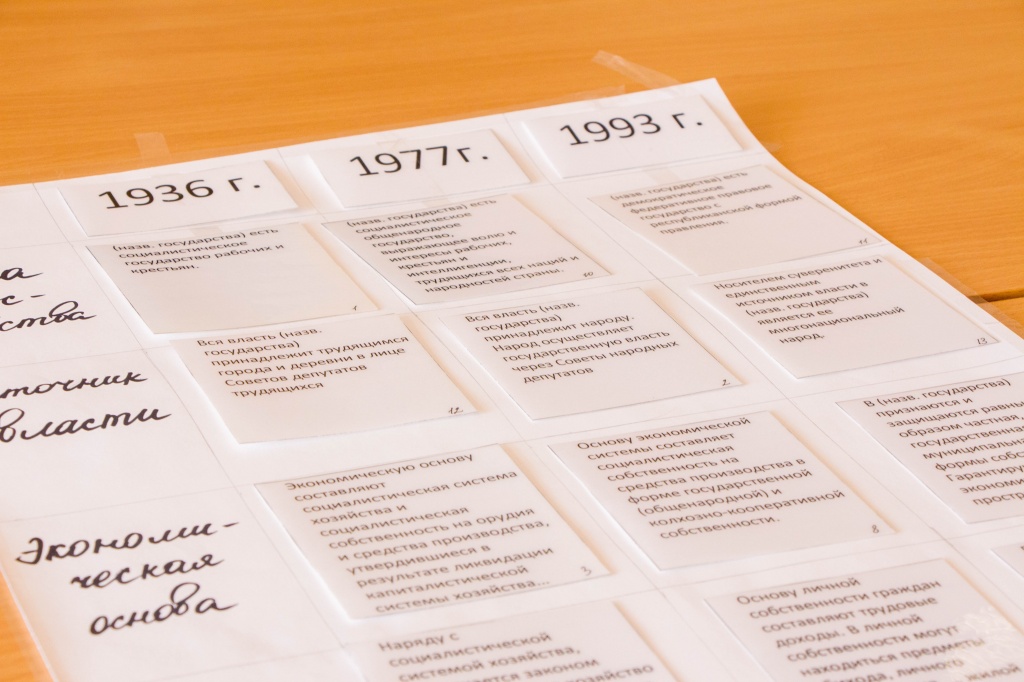 1936 г.
1977г.
1993 г.
(назв. государства) есть
социалистическое
государство рабочих и
крестьян.
1
(назв. государства) есть
социалистическое
общенародное
государство,
выражающее волю и
интересы рабочих,
крестьян и
интеллигенции,
трудящихся всех наций и
народностей страны.
10
(назв. государства) есть
демократическое
федеративное правовое
государство с
республиканской формой
правления.
11
а
с-
ства
Вся власть (назв.
государства)
принадлежит трудящимся
города и деревни в лице
Советов депутатов
трудящихся
12
Вся власть (назв.
государства)
принадлежит народу.
Народ осуществляет
государственную власть
через Советы народных
депутатов
2
Носителем суверенитета и
единственным
источником власти в
(назв. государства)
является ее
многонациональный
народ.
13
точник
власти
Экономическую основу
составляют
социалистическая система
хозяйства и
социалистическая
собственность на орудия
и средства производства,
утвердившиеся в
результате ликвидации
капиталистической
системы хозяйства...
3
Основу экономической
системы составляет
социалистическая
собственность на
средства производства в
форме государственной
(общенародной) и
колхозно-кооперативной
собственности.
8
В (назв. государства)
признаются и
защищаются
образом частная,
формы
Экономи-
ческая
основа
Наряду с
социалистической
системой хозяйства,
законом
хозяйство
Основу личной
собственности граждан
составляют трудовые
доходы. В личной
собственности могут
находиться